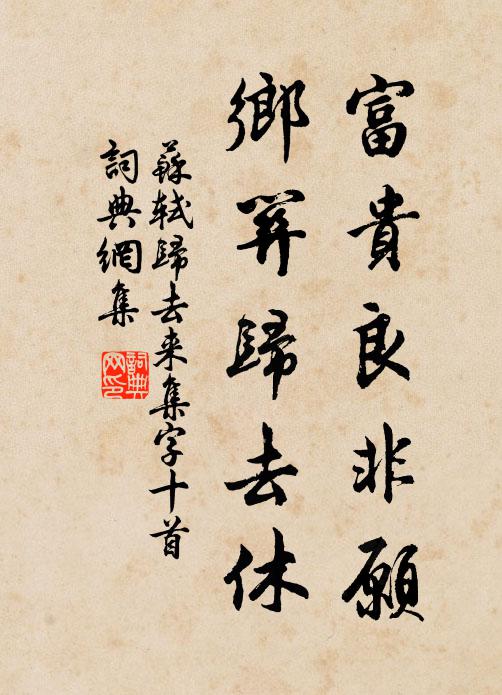 富貴良非願
鄉关歸去休
蘇軾歸去来集字十首
詞典網集
詞典
网印